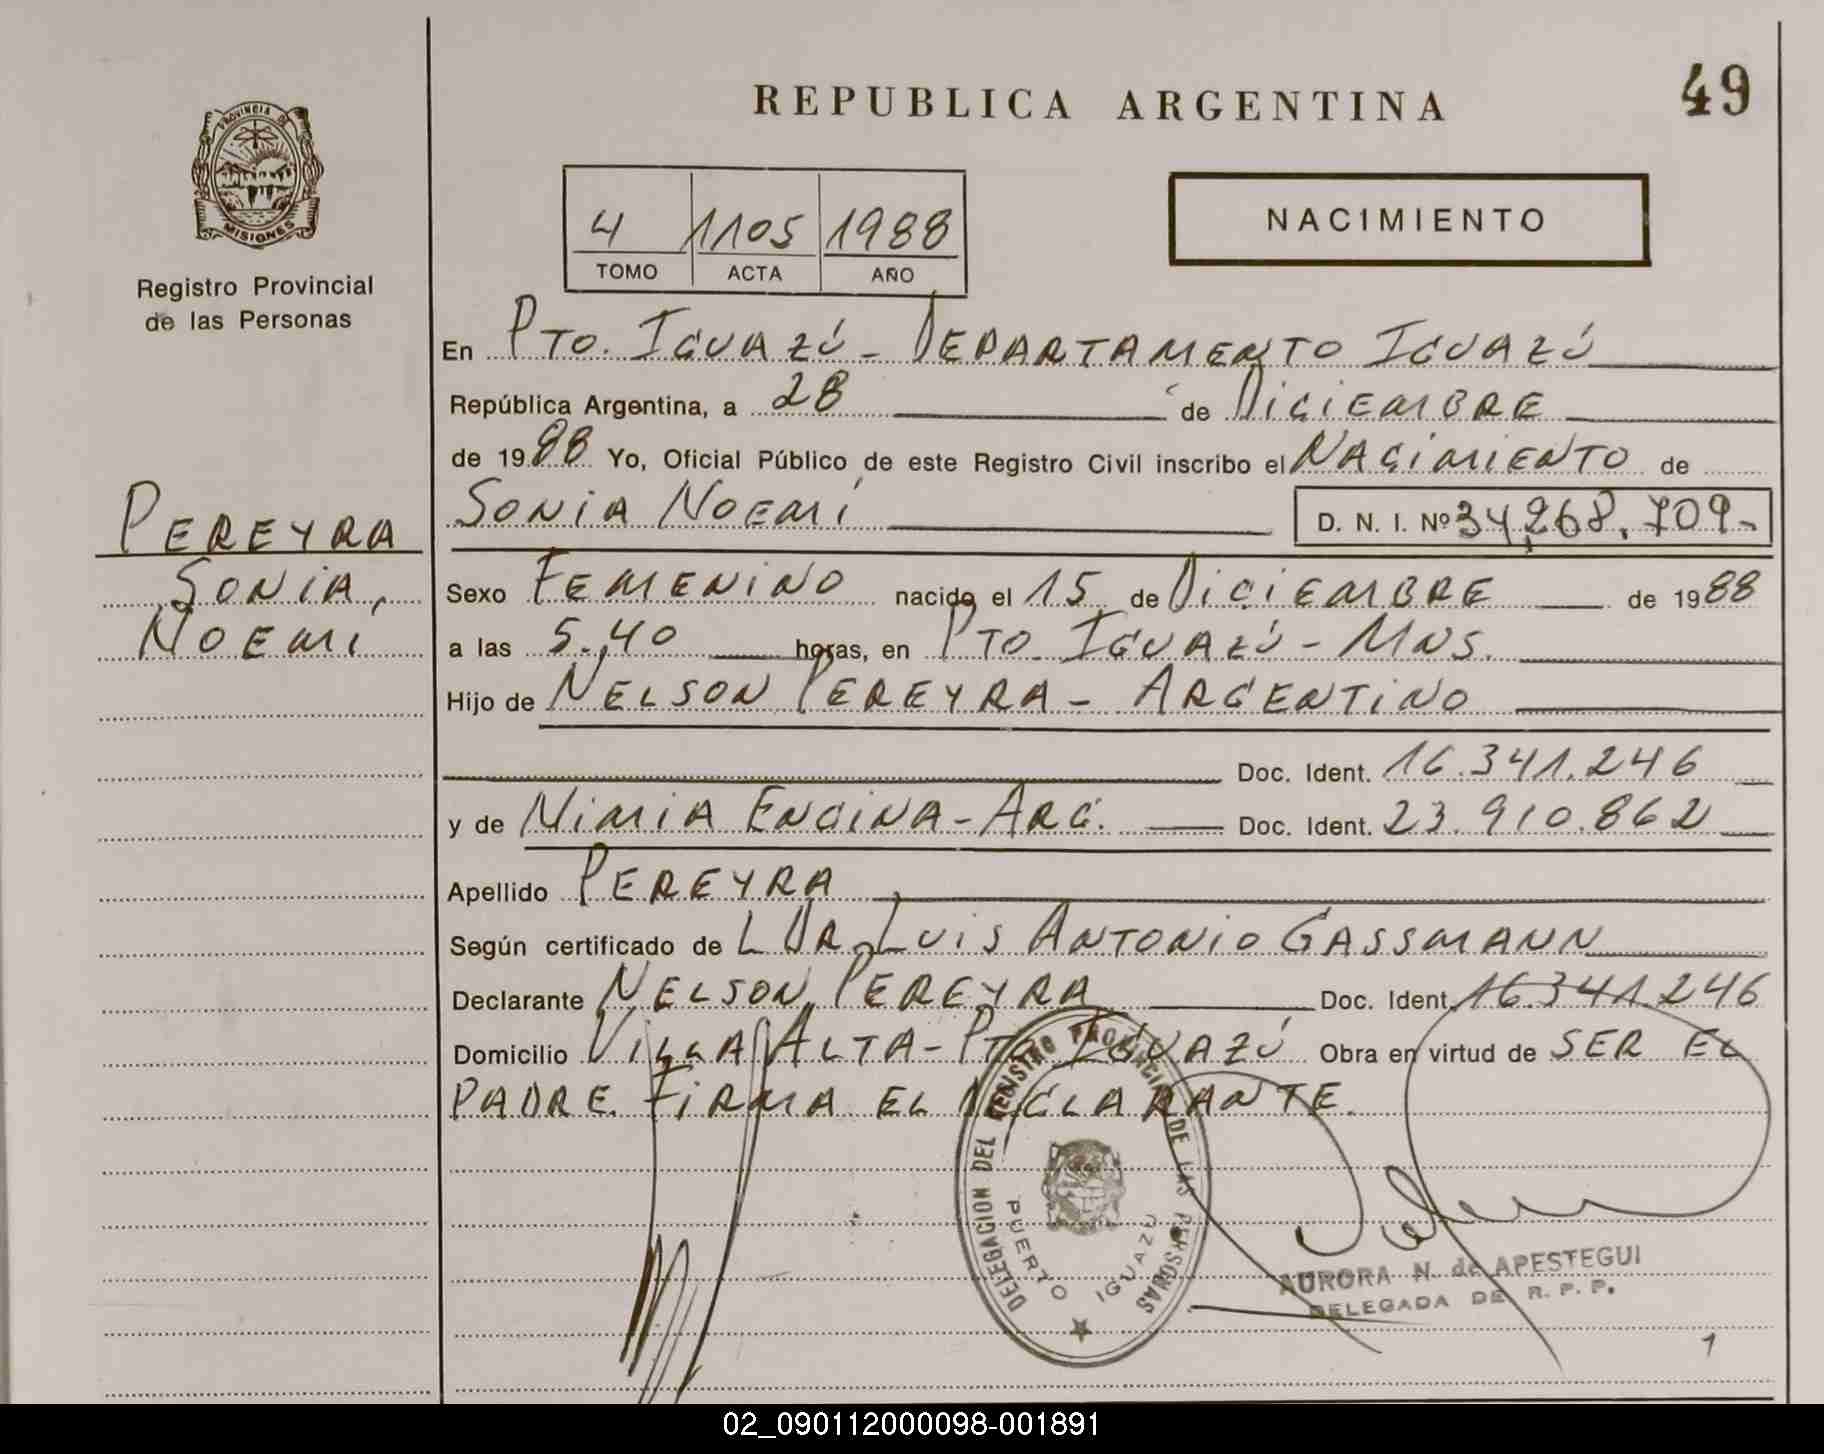 REPUBLICA ARGENTINA
49
PROVINCIA DE
MISIONES
Registro Provincial
de las Personas
4 1105 1988
TOMO ACTA AÑO
NACIMIENTO
En PTO. IGUAZÚ - DEPARTAMENTO IGUAZÚ
República Argentina, a 28 de DICIEMBRE
de 1988 Yo, Oficial Público de este Registro Civil inscribo el NACIMIENTO de
SONIA NOEMÍ D. N. I. Nº 34,268.709-
PEREYRA
SONIA,
NOEMÍ
Sexo FEMENINO nacido el 15 de DICIEMBRE de 1988
a las 5.,40 horas, en PTO. IGUAZÚ - MNS.
Hijo de NELSON PEREYRA - ARGENTINO
Doc. Ident. 16.341.246
y de NIMIA ENCINA - ARG. Doc. Ident. 23.910.862
Apellido PEREYRA
Según certificado de L DR. LUIS ANTONIO GASSMANN
Declarante NELSON PEREYRA Doc. Ident. 16.341.246
Domicilio VILLA ALTA - PTO IGUAZÚ Obra en virtud de SER EL
PADRE. FIRMA EL DECLARANTE.
DELEGACION DEL REGISTRO PROVINCIAL DE LAS PERSONAS
PUERTO IGUAZU
AURORA N. de APESTEGUI
DELEGADA DE R. P. P.
1
02_090112000098-001891